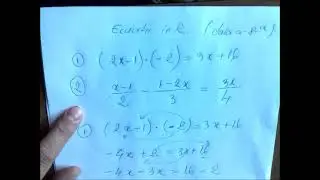 Ecuatii in
① (2x-1)·(-2) = 3x+16
② x-1/2 - 1-2x/3 = 3x/4
① (2x-1)·(-2) = 3x+16
-4x+2 = 3x+16
-4x-3x = 16-2